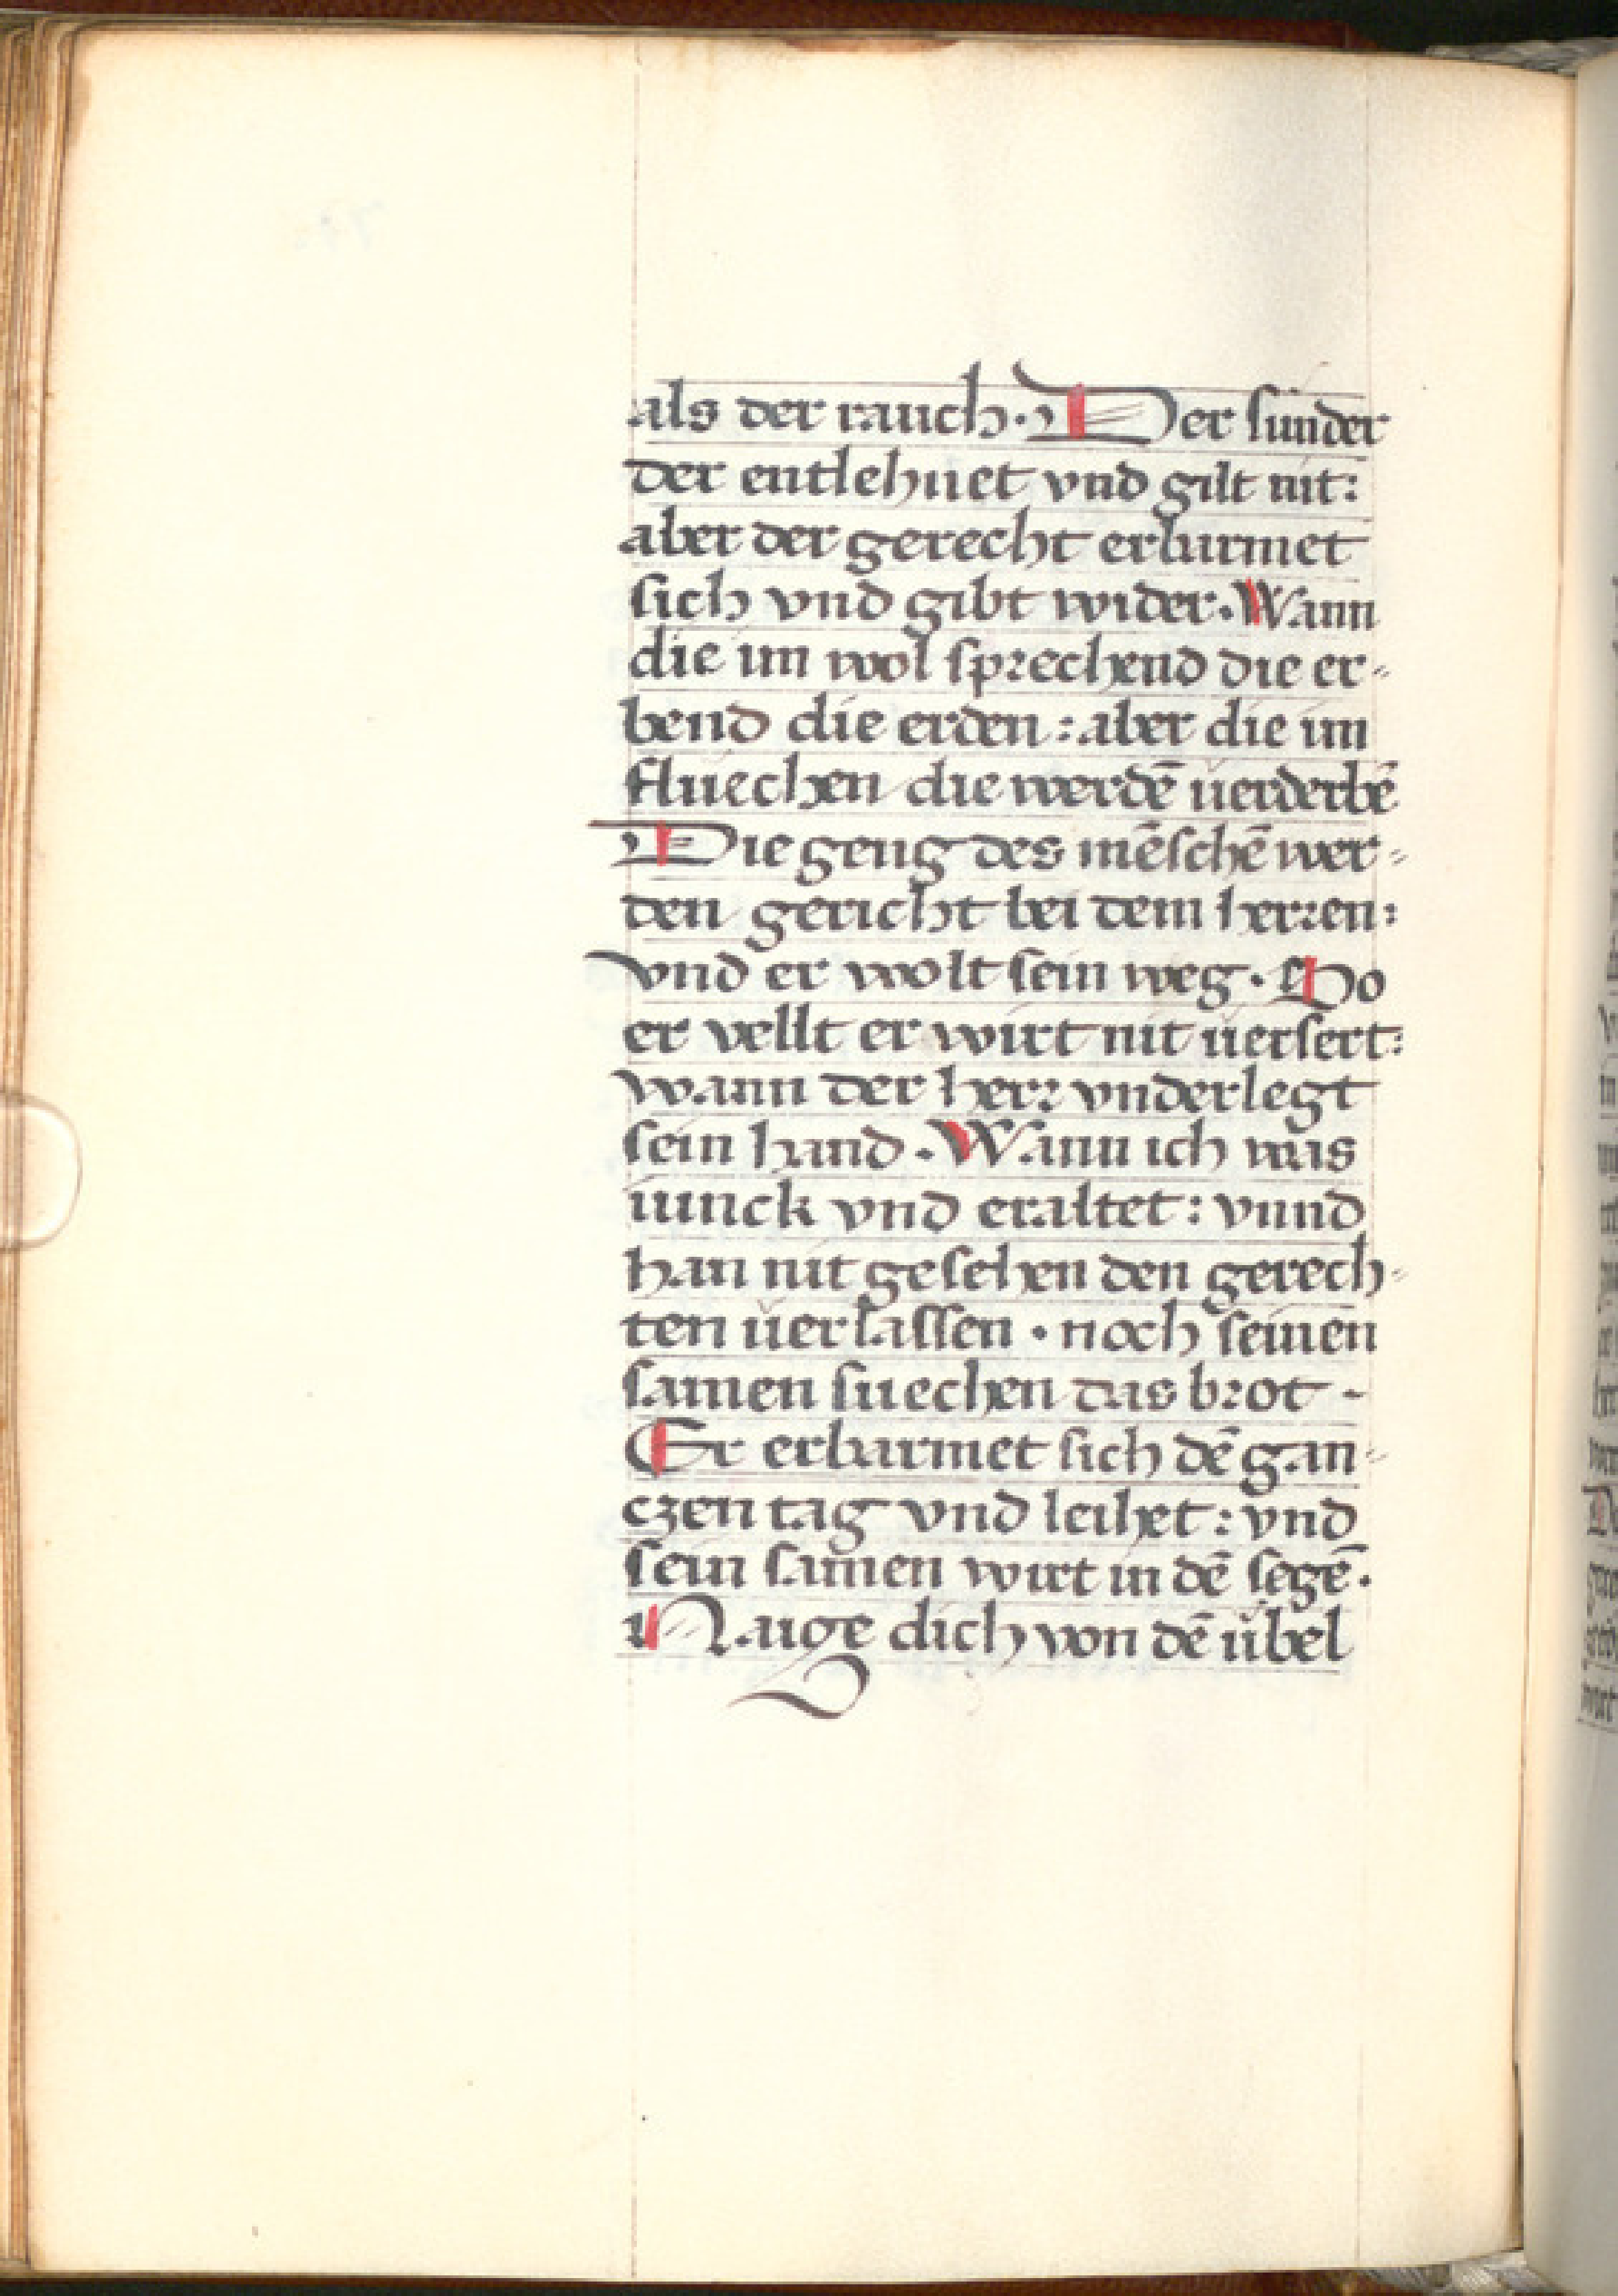 als der rauch · Der sünder
der entlehnet vnd gilt nit:
aber der gerecht erbarmet
sich vnd gibt wider · Wann
die im wol sprechend die er-
bend die erden : aber die im
fluechen die werdē verderbē
Die geng des mēschē wer-
den gericht bei dem herren:
vnd er wolt sein weg · So
er vellt er wirt nit versert:
wann der herr vnderlegt
sein hand · Wann ich was
iunck vnd eraltet : vnnd
han nit gesehen den gerech-
ten verlassen · noch seinen
samen suechen das brot ·
Er erbarmet sich dē gan-
czen tag vnd leihet : vnd
sein samen wirt in dē segē ·
Naige dich von dē übel